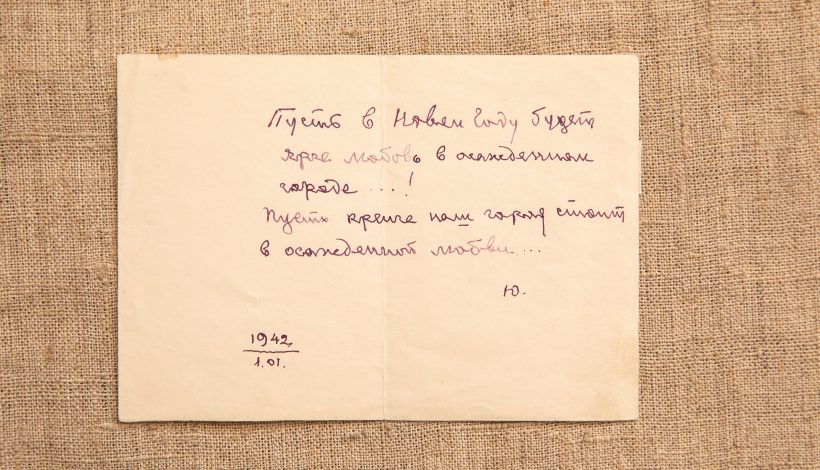 Пусть в Новом Году будет
ярче любовь в осажденном
городе ... !
Пусть крепче наш город стоит
в осажденной любви ...
Ю.
1942
1.01.